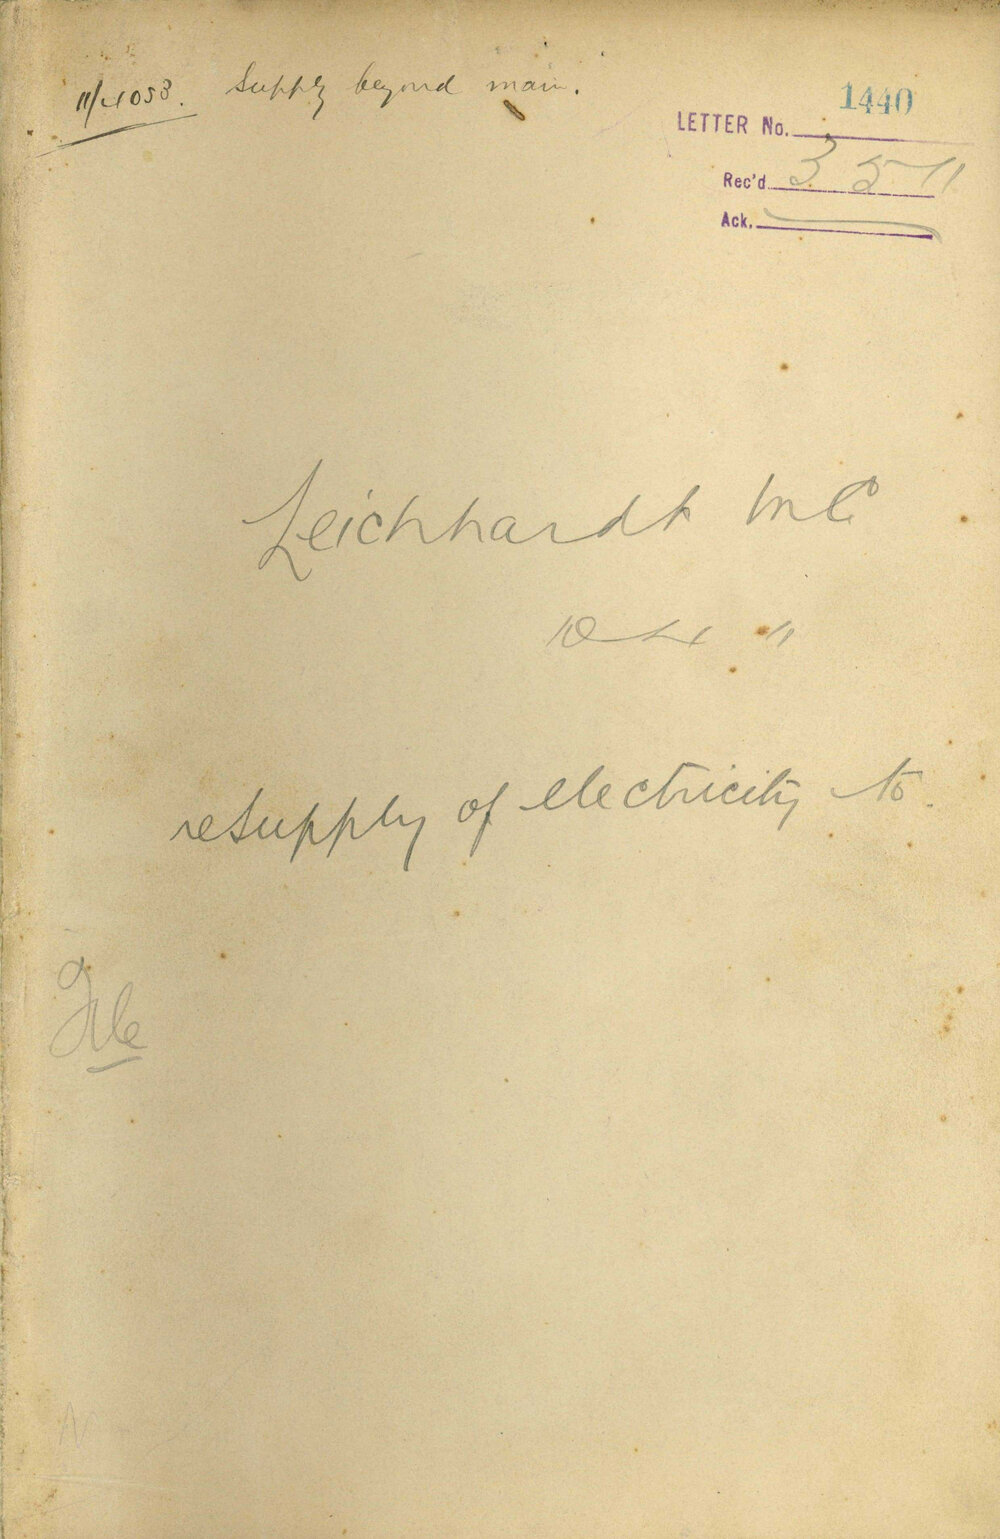 11/1058. Supply beyond main.
1440
LETTER No.
Rec'd 3 5 11
Ack.
Leichhardt MC
"
re supply of electricity to.
File